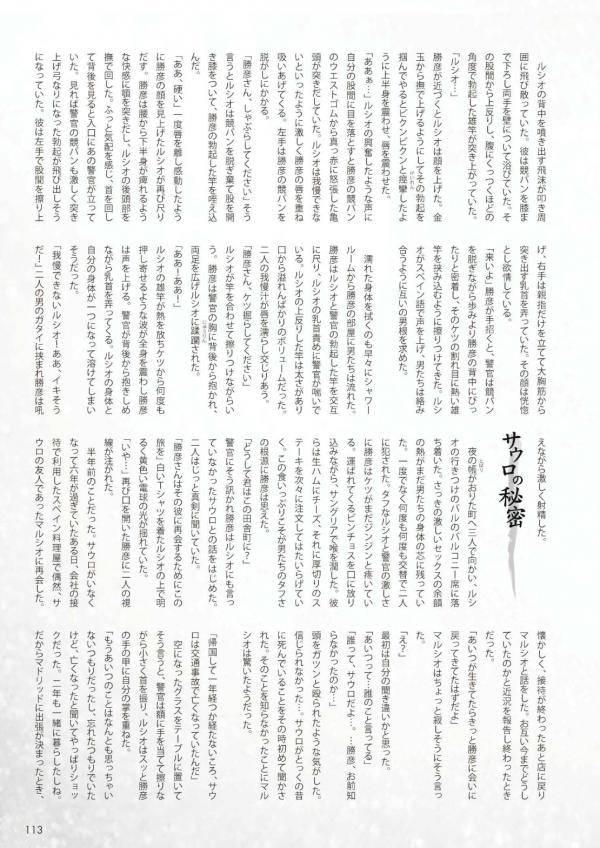 ルシオの背中を噴き出す飛沫が叩き周
囲に飛び散っていた。彼は競パンを膝ま
で下ろし両手を壁について浴びていた。そ
の股間から上反りし、腹にくっつくほどの
角度で勃起した雄竿が突き上がっていた。
「ルシオ…」
勝彦が近づくとルシオは顔を上げた。金
玉から撫で上げるようにしてその勃起を
掴んでやるとビクンビクンと痙攣したよ
うに上半身を震わせ、唇を震わせた。
「ああぁ…」ルシオの興奮したような声に
自分の股間に目を落とすと勝彦の競パン
のウエストゴムから真っ赤に怒張した亀
頭が突きだしていた。ルシオは我慢できな
いといったように激しく勝彦の唇を重ね
吸いあげてくる。左手は勝彦の競パンを
脱がしにかかる。
「勝彦さん、しゃぶらしてください」そう
言うとルシオは競パンを脱ぎ棄て股を開
き膝をついて、勝彦の勃起した竿を咥え込
んだ。
「ああ、硬い」一度唇を離し感動したよう
に勝彦の顔を見上げたルシオが再び尺り
だす。勝彦は腰から下半身が痺れるよう
な快感に顎を突きだし、ルシオの後頭部を
撫で回した。ふっと気配を感じ、首を回し
て背後を見ると入口にあの警官が立って
いた。見れば警官の競パンも激しく突き
上げ弓なりになった勃起が飛び出しそう
になっていた。彼は左手で股間を擦り上
げ、右手は親指だけを立てて大胸筋から
突き出す乳首を弄っていた。その顔は恍惚
とし欲情している。
「来いよ」勝彦が手招くと、警官は競パン
を脱ぎながら歩みより勝彦の背中にぴっ
たりと密着し、そのケツの割れ目に熱い雄
竿を挟み込むように擦りつけてきた。ルシ
オがスペイン語で声を上げ、男たちは絡み
合うように互いの男根を求めた。
濡れた身体を拭くのも早々にシャワー
ルームから勝彦の部屋に男たちは流れた。
勝彦はルシオと警官の勃起した竿を交互
に尺り、ルシオの乳首責めに警官が喘いで
いる。ルシオの上反りした竿は太さがあり
口から溢れんばかりのボリュームだった。
二人の我慢汁が唇を濡らし交じりあう。
「勝彦さん、ケツ掘らしてください」
ルシオが竿を合わせて擦りつけながらい
う。勝彦は警官の胸に背後から抱かれ、
両足を広げルシオに蹂躙された。
「ああーああ!」
ルシオの雄竿が熱を放ちケツから何度も
押し寄せるような波が全身を震わし勝彦
は声を上げる。警官が背後から抱きしめ
ながら乳首を弄ってくる。ルシオの身体と
自分の身体が一つになって溶けてしまい
そうだった。
「我慢できないルシオ!ああ、イキそう
だ!」二人の男のガタイに挟まれ勝彦は吼
えながら激しく射精した。
サウロの秘密
夜の帳がおりた町へ三人で向かい、ルシ
オの行きつけのバルのバルコニー席に落
ち着いた。さっきの激しいセックスの余韻
の熱がまだ男たちの身体の芯に残ってい
た。一度でなく何度も何度も交替で二人
に犯された。タフなルシオと警官の激しさ
に勝彦はケツがまだジンジンと疼いてい
る。運ばれてくるピンチョスを口に放り
込みながら、サングリアで喉を潤した。彼
らは生ハムにチーズ、それに厚切りのス
テーキを次々に注文してはたいらげてい
く。この食いっぷりこそが男たちのタフさ
の根源に勝彦は思えた。
「どうして君はこの田舎町に?」
警官にそう訊かれ勝彦はルシオにも言っ
ていなかったサウロとの話をはじめた。
二人はじっと真剣に聞いていた。
「勝彦さんはその彼に再会するためにこの
旅を」白いTシャツを着たルシオの上で明
るく黄色い電球の光が揺れていた。
「いや…」再び口を開いた勝彦に二人の視
線が注がれた。
半年前のことだった。サウロがいなく
なって六年が過ぎていたある日、会社の接
待で利用したスペイン料理屋で偶然、サ
ウロの友人であったマルシオに再会した。
懐かしく、接待が終わったあと店に戻り
マルシオと話をした。お互い今までどうし
ていたのかと近況を報告し終わったとき
だった。
「あいつが生きてたらきっと勝彦に会いに
戻ってきてたはずだよ」
マルシオはちょっと寂しそうにそう言っ
た。
「え?」
最初は自分の聞き違いかと思った。
「あいつって…誰のこと言ってる」
「誰って、サウロだよ…。…勝彦、お前知
らなかったのか…」
頭をガツンと殴られたような気がした。
信じられなかった…サウロがとっくの昔
に死んでいることをその時初めて聞かさ
れた。そのことを知らなかったことにマル
シオは驚いたようだった。
「帰国して一年経つか経たないころ、サウ
ロは交通事故で亡くなっていたんだ」
空になったグラスをテーブルに置いて
そう言うと、警官は額に手を当てて擦りな
がら小さく首を振り、ルシオはスッと勝彦
の手の甲に自分の掌を重ねた。
「もうあいつのことはなんとも思っちゃい
ないつもりだったし、忘れたつもりでいた
けど、亡くなったと聞いてやっぱりショッ
クだった。二年も一緒に暮らしたしね。
だからマドリッドに出張が決まったとき、
113